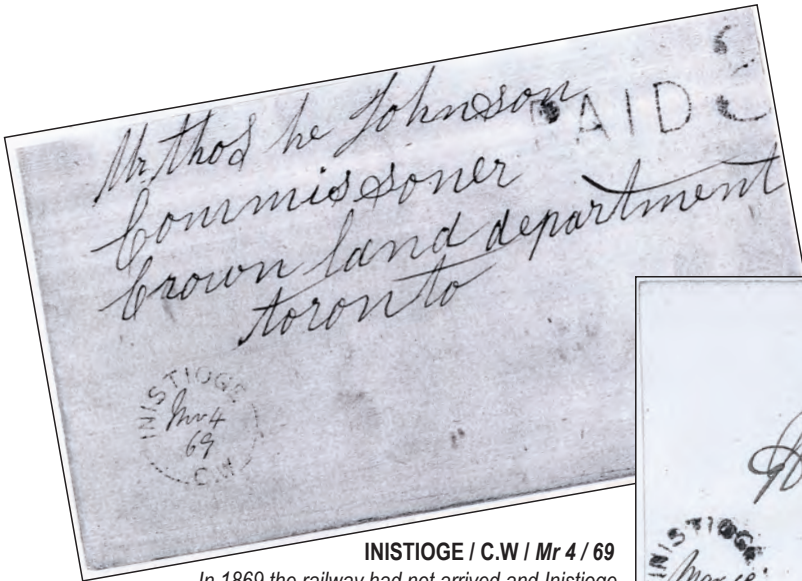 Mr thos he Johnson
Commissoner
Crown land department
toronto
PAID 3
INISTIOGE
Mr 4
69
C.W
INISTIOGE / C.W / Mr 4 / 69
In 1869 the railway had not arrived and Inistioge
INISTIOGE